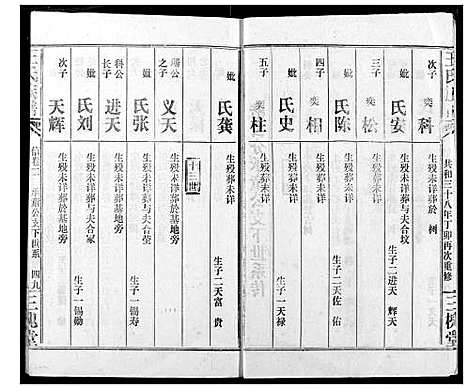 共和三十八年丁卯再次重修
三槐堂
次子 奕科 生殁未详葬於 树
妣 安氏 生殁未详与夫合坟 生子二进天 辉天
三子 奕松 生殁未详葬
妣 陈氏 生殁未详葬 生子二天佐 佑
四子 奕相 生殁未详葬
妣 史氏 生殁未详葬 生子一天禄
五子 奕柱 生殁未详葬
妣 龚氏 生殁未详葬 生子二天富 贵
十三世
之子 义天 生殁未详葬於基地旁
妣 张氏 生殁未详葬与夫合茔 生子一锡寿
科公长子 进天 生殁未详葬基地旁
妣 刘氏 生殁未详葬与夫合冢 生子一锡勋
次子 天辉 生殁未详葬於基地旁
公天下世系 四九